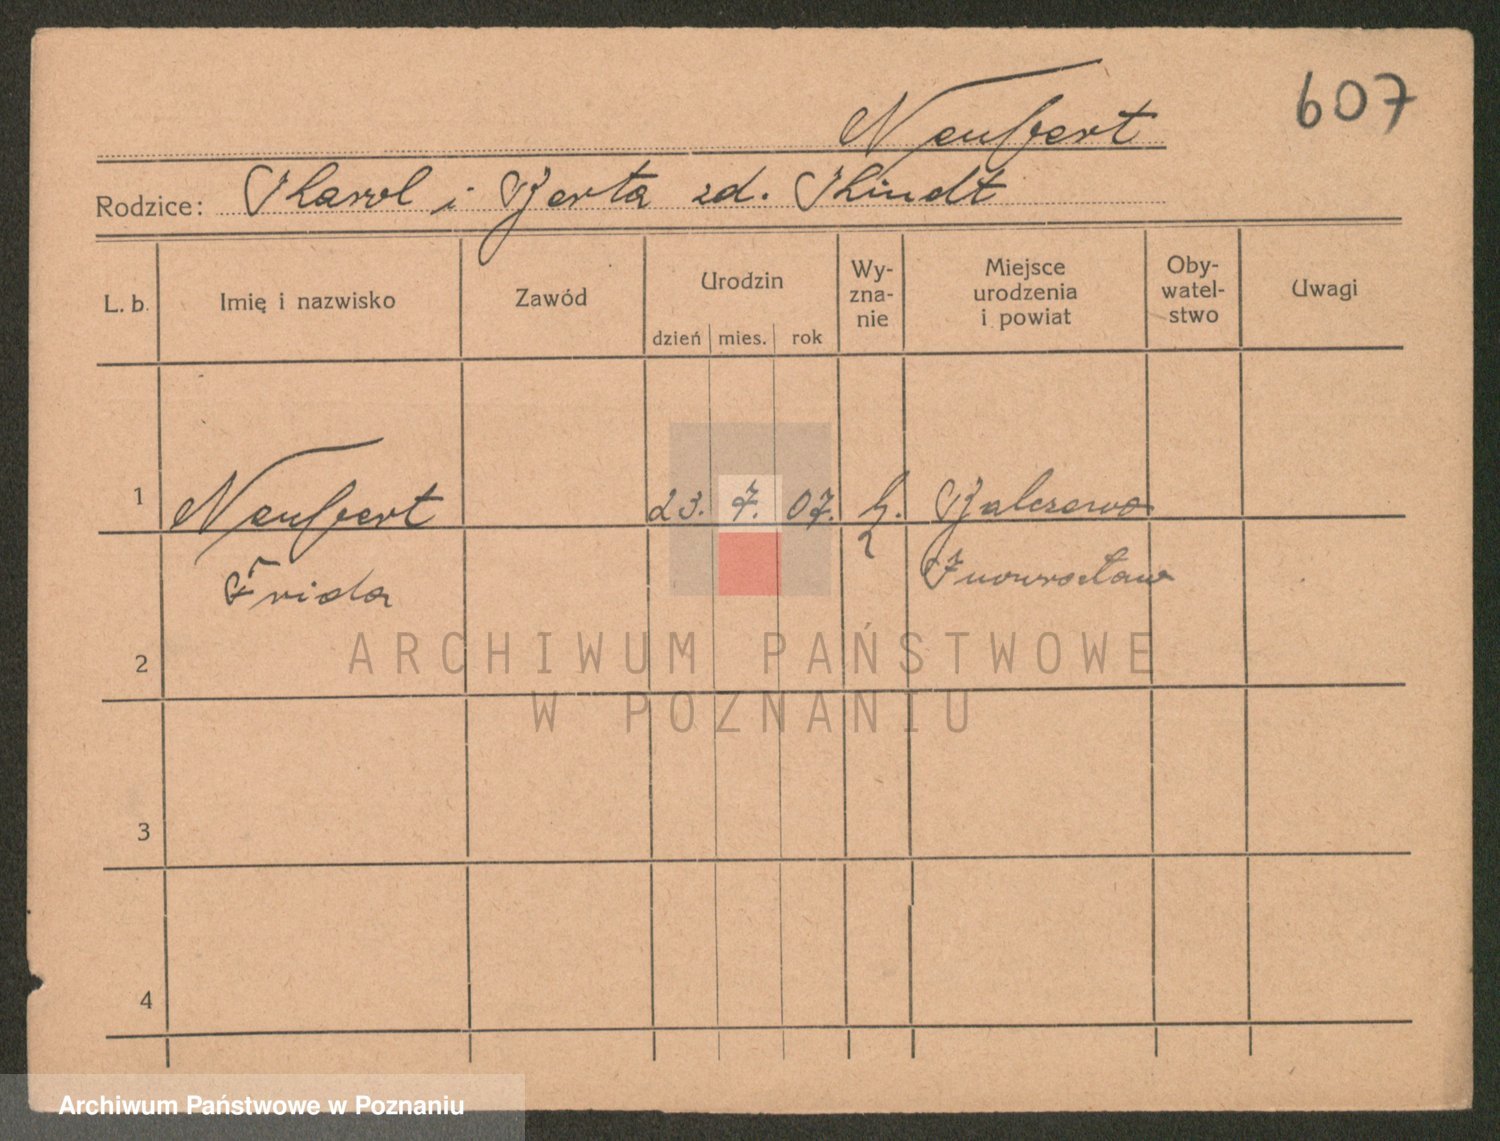 607
Neufert
Rodzice: Karol i Berta zd. Klindt
L. b. Imię i nazwisko Zawód Urodzin dzień mies. rok Wy-zna-nie Miejsce urodzenia i powiat Oby-watel-stwo Uwagi
1 Neufert 23. 7. 07. Balczewo
Frida Inowrocław
2
ARCHIWUM PAŃSTWOWE
W POZNANIU
3
4
Archiwum Państwowe w Poznaniu